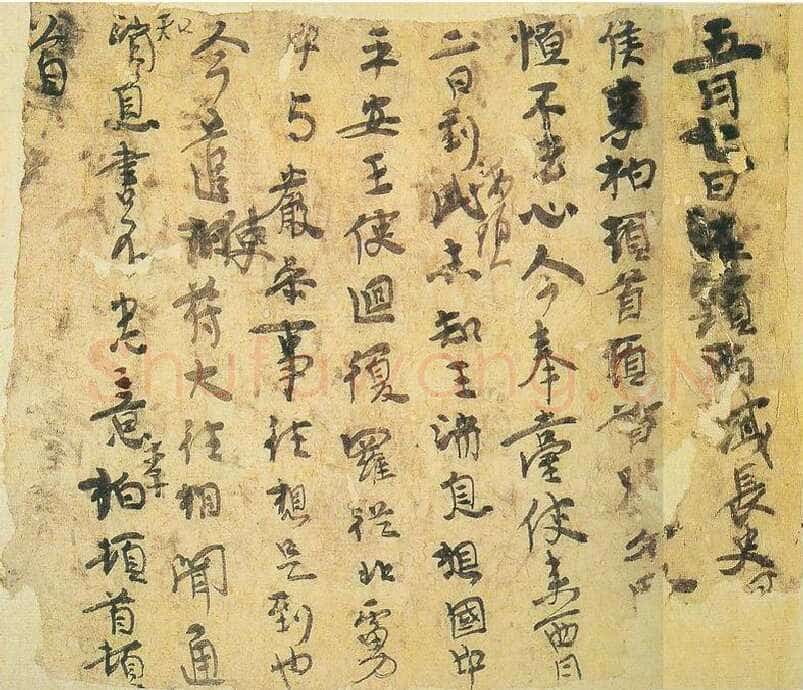 五月七日海頭西域長史
侯李柏頓首頓首
恒不去心今奉臺使來西月
二日到此海頭未知王消息想國中
平安王使迴復羅從北虜
中与嚴參事往想是到也
今遣使苻大往相聞通
知消息書不悉意李柏頓首頓
首
ShuFaWang.CN